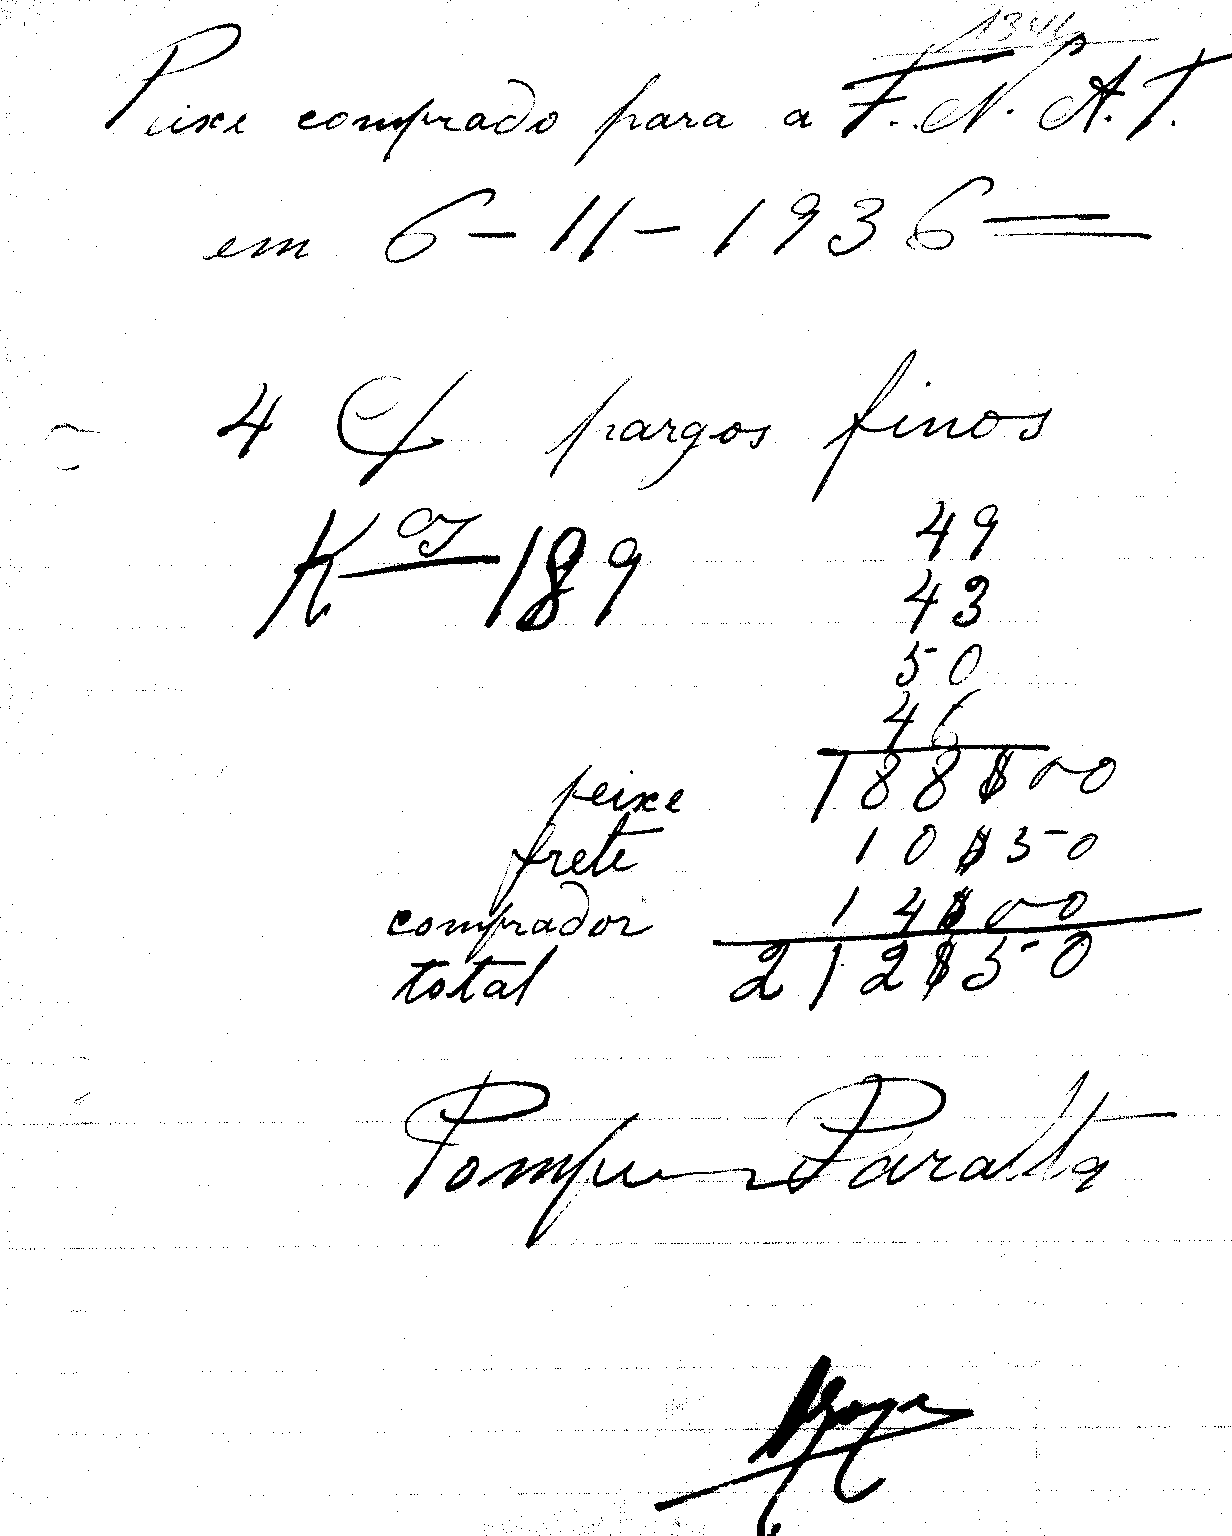 Peixe comprado para a F. N. A. T.
em 6-11-1936
4 C/ pargos finos
Kos 189
49
43
50
46
peixe 188$00
frete 10$50
comprador 14$00
total 212$50
Pompeu Paralta